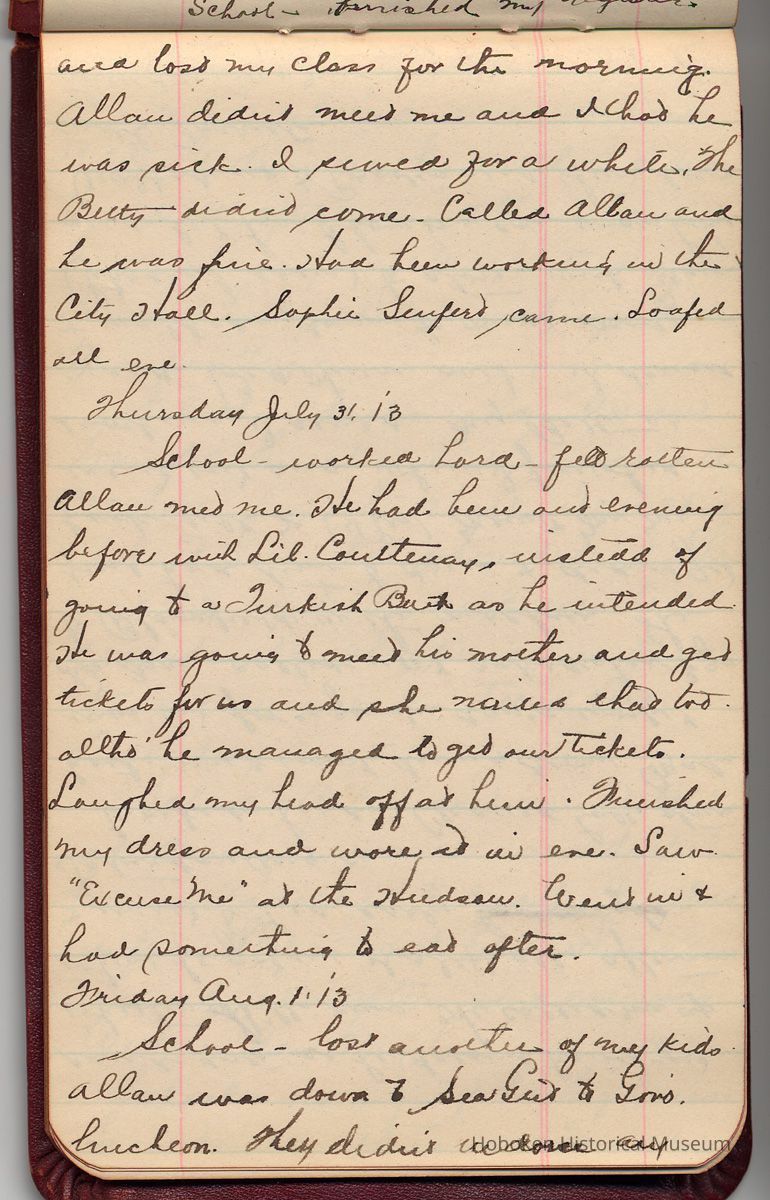 School - finished my
and lost my class for the morning.
Allan didn't meet me and I that he
was sick. I sewed for a while. The
Betty didn't come. Called Allan and
he was fine. Had been working in the
City Hall. Sophie Seuferd came. Loafed
all eve.
Thursday July 31, '13
School - worked hard - felt rotten
Allan met me. He had been out evening
before with Lil. Courtenay, instead of
going to a Turkish Bath as he intended.
He was going to meet his mother and get
tickets for us and she nailed that too.
altho' he managed to get our tickets.
Laughed my head off at him. Finished
my dress and wore it in eve. Saw
"Excuse Me" at the Hudson. Went in &
had something to eat after.
Friday Aug. 1. '13
School - lost another of my kids
Allan was down to Sea Girt to Gov's.
luncheon. They didn't
Hoboken Historical Museum